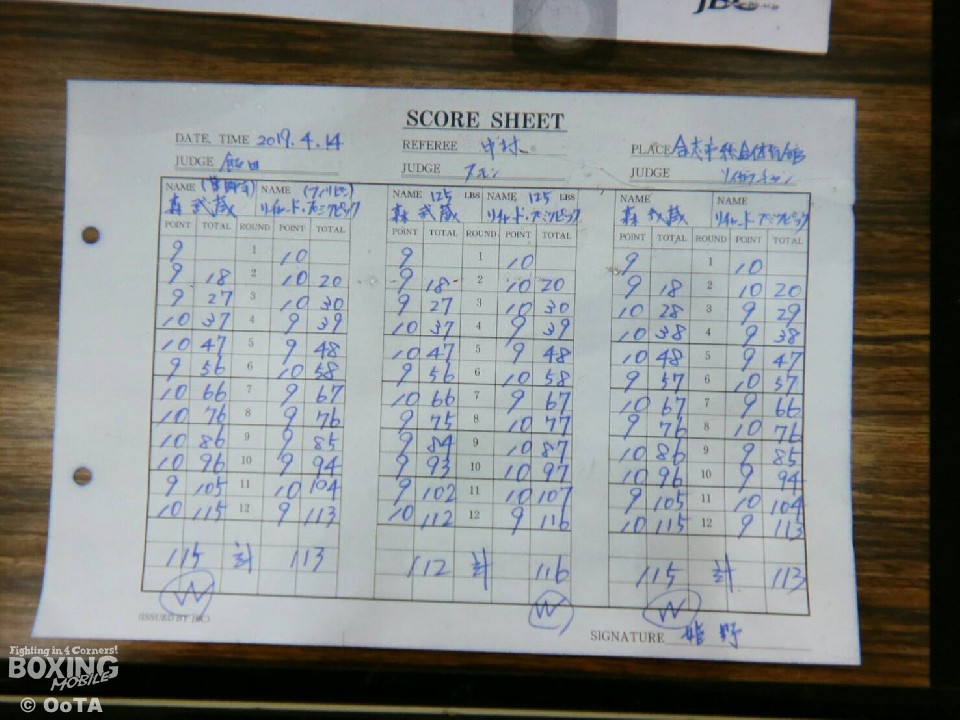 JBC
SCORE SHEET
DATE, TIME 2019.4.14 REFEREE 中村 PLACE 合志市総合体育館
JUDGE 飯田 JUDGE JUDGE
NAME NAME (フィリピン) NAME 125 LBS NAME 125 LBS NAME NAME
森 武蔵 リチャード・ 森 武蔵 リチャード・ 森 武蔵 リチャード・
POINT TOTAL ROUND POINT TOTAL POINT TOTAL ROUND POINT TOTAL POINT TOTAL ROUND POINT TOTAL
9 1 10 9 1 10 9 1 10
9 18 2 10 20 9 18 2 10 20 9 18 2 10 20
9 27 3 10 30 9 27 3 10 30 10 28 3 9 29
10 37 4 9 39 10 37 4 9 39 10 38 4 9 38
10 47 5 9 48 10 47 5 9 48 10 48 5 9 47
9 56 6 10 58 9 56 6 10 58 9 57 6 10 57
10 66 7 9 67 10 66 7 9 67 10 67 7 9 66
10 76 8 9 76 9 75 8 10 77 9 76 8 10 76
10 86 9 9 85 9 84 9 10 87 10 86 9 9 85
10 96 10 9 94 9 93 10 10 97 10 96 10 9 94
9 105 11 10 104 9 102 11 10 107 9 105 11 10 104
10 115 12 9 113 10 112 12 9 116 10 115 12 9 113
115 計 113 112 計 116 115 計 113
W W W
(ISSUED BY JBC) SIGNATURE 姫野
Fighting in 4 Corners!
BOXING
MOBILE
© OoTA